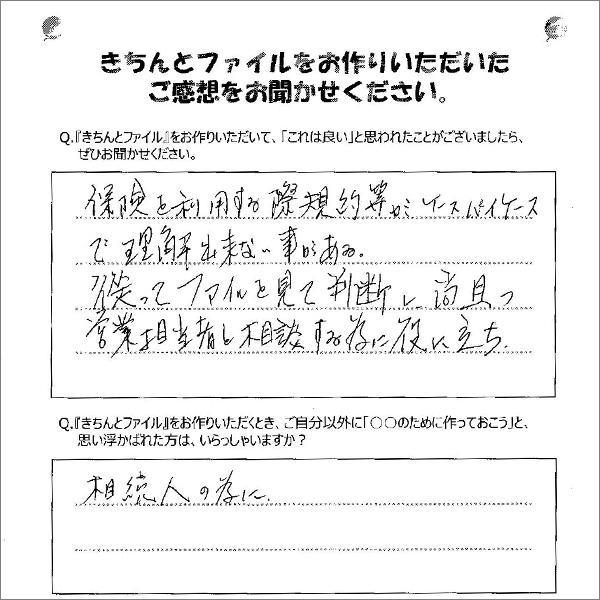 きちんとファイルをお作りいただいた
ご感想をお聞かせください。
Q.『きちんとファイル』をお作りいただいて、「これは良い」と思われたことがございましたら、
ぜひお聞かせください。
保険を利用する際規約等がケースバイケース
で理解出来ない事がある。
従ってファイルを見て判断し、尚且つ
営業担当者と相談する為に役に立ち、
Q.『きちんとファイル』をお作りいただくとき、ご自分以外に「〇〇のために作っておこう」と、
思い浮かばれた方は、いらっしゃいますか？
相続人の為に